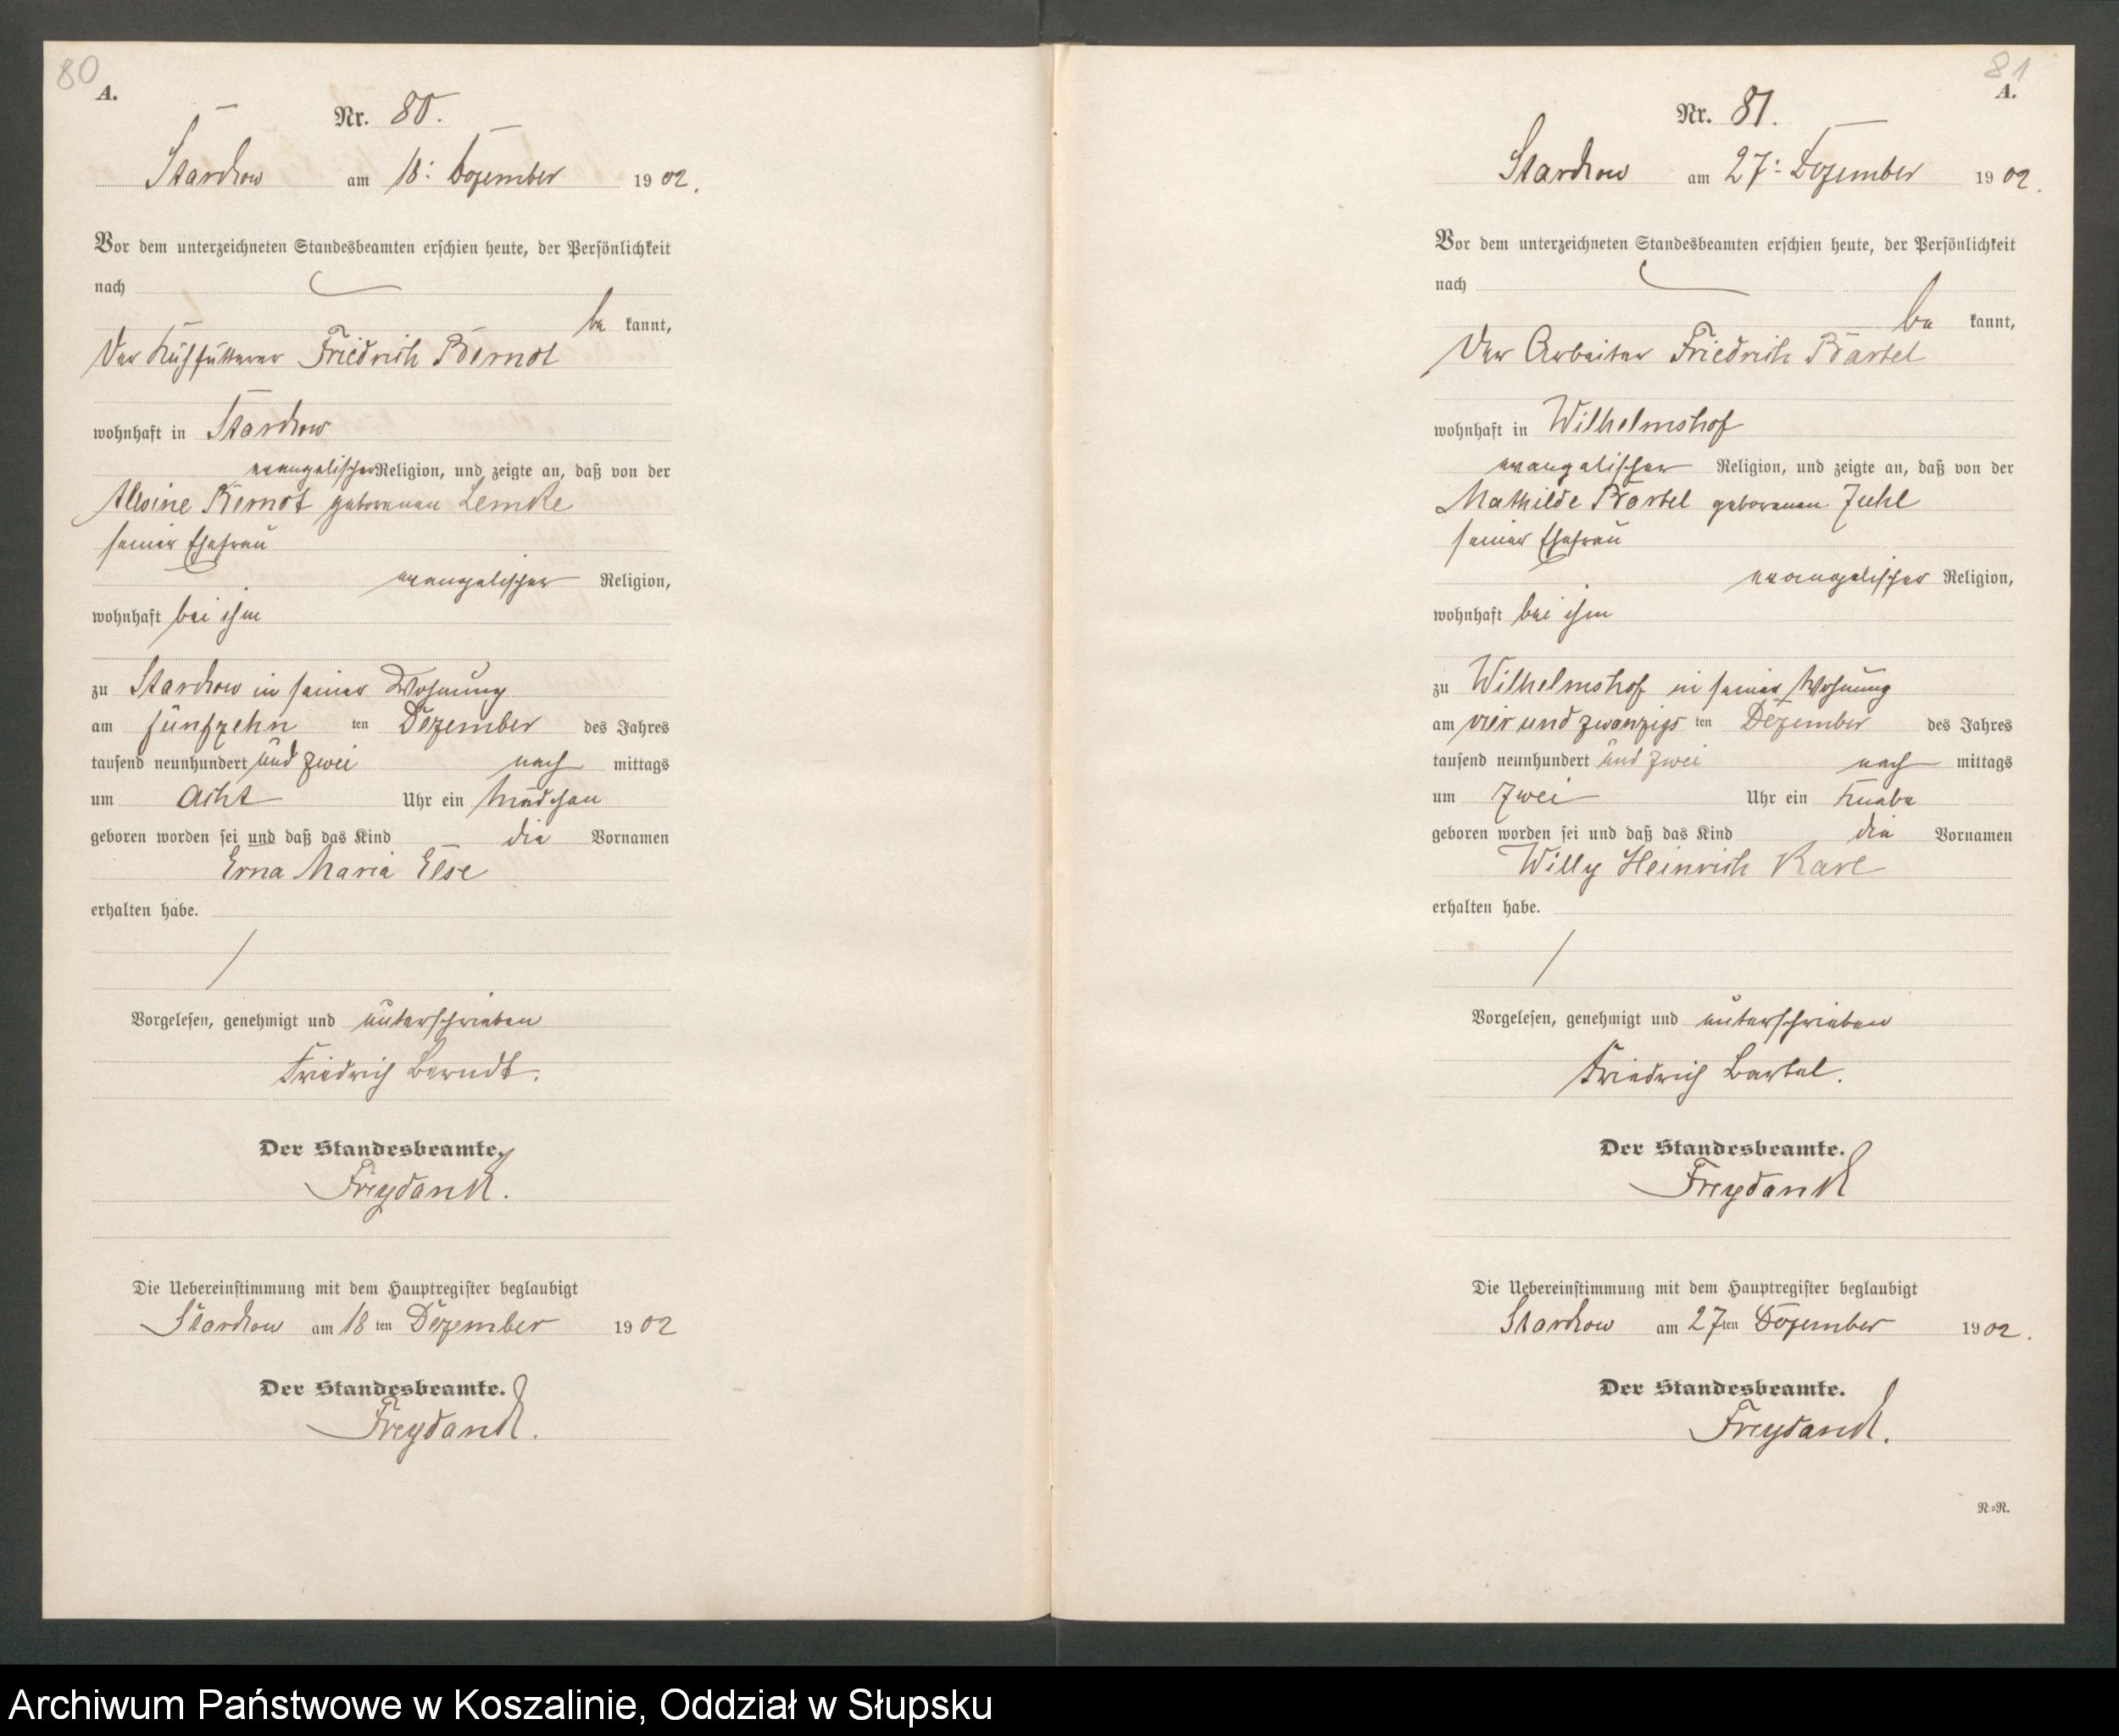 80
A.
Nr. 80.
Starckow am 18: Dezember 1902.
Vor dem unterzeichneten Standesbeamten erschien heute, der Persönlichkeit
nach
be kannt,
Der Kuhfütterer Friedrich Berndt
wohnhaft in Starckow
evangelischer Religion, und zeigte an, daß von der
Alwine Berndt geborenen Lemke
seiner Ehefrau
evangelischer Religion,
wohnhaft bei ihm
zu Starckow in seiner Wohnung
am fünfzehn ten Dezember des Jahres
tausend neunhundert und zwei nach mittags
um acht Uhr ein Mädchen
geboren worden sei und daß das Kind die Vornamen
Erna Maria Else
erhalten habe.
Vorgelesen, genehmigt und unterschrieben
Friedrich Berndt.
Der Standesbeamte.
Freydank.
Die Uebereinstimmung mit dem Hauptregister beglaubigt
Starckow am 18 ten Dezember 1902
Der Standesbeamte.
Freydank.
81
A.
Nr. 81.
Starckow am 27: Dezember 1902.
Vor dem unterzeichneten Standesbeamten erschien heute, der Persönlichkeit
nach
be kannt,
Der Arbeiter Friedrich Bartel
wohnhaft in Wilhelmshof
evangelischer Religion, und zeigte an, daß von der
Mathilde Bartel geborenen Juhl
seiner Ehefrau
evangelischer Religion,
wohnhaft bei ihm
zu Wilhelmshof in seiner Wohnung
am vier und zwanzigs ten Dezember des Jahres
tausend neunhundert und zwei nach mittags
um zwei Uhr ein Knabe
geboren worden sei und daß das Kind die Vornamen
Willy Heinrich Karl
erhalten habe.
Vorgelesen, genehmigt und unterschrieben
Friedrich Bartel.
Der Standesbeamte.
Freydank
Die Uebereinstimmung mit dem Hauptregister beglaubigt
Starckow am 27 ten Dezember 1902.
Der Standesbeamte.
Freydank.
N=N.
Archiwum Państwowe w Koszalinie, Oddział w Słupsku